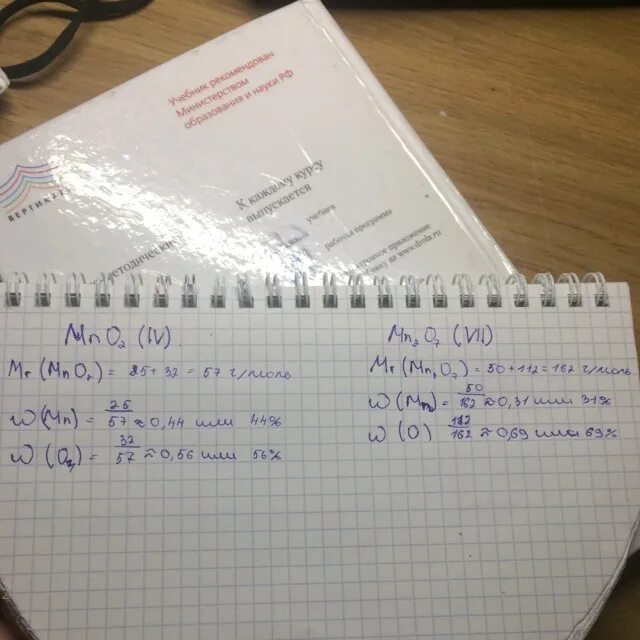 Учебник рекомендован
Министерством
образования и науки РФ
ВЕРТИКАЛ
К каждому курсу
выпускается
учебник
рабочая программа
приложение
на www.drofa.ru
Mn O₂ (IV)
Mr (Mn O₂) = 25 + 32 = 57 г/моль
ω (Mn) = 25/57 ≈ 0,44 или 44%
ω (O₂) = 32/57 ≈ 0,56 или 56%
Mn₂ O₇ (VII)
Mr (Mn₂ O₇) = 50 + 112 = 162 г/моль
ω (Mn) = 50/162 ≈ 0,31 или 31%
ω (O) 112/162 ≈ 0,69 или 69%